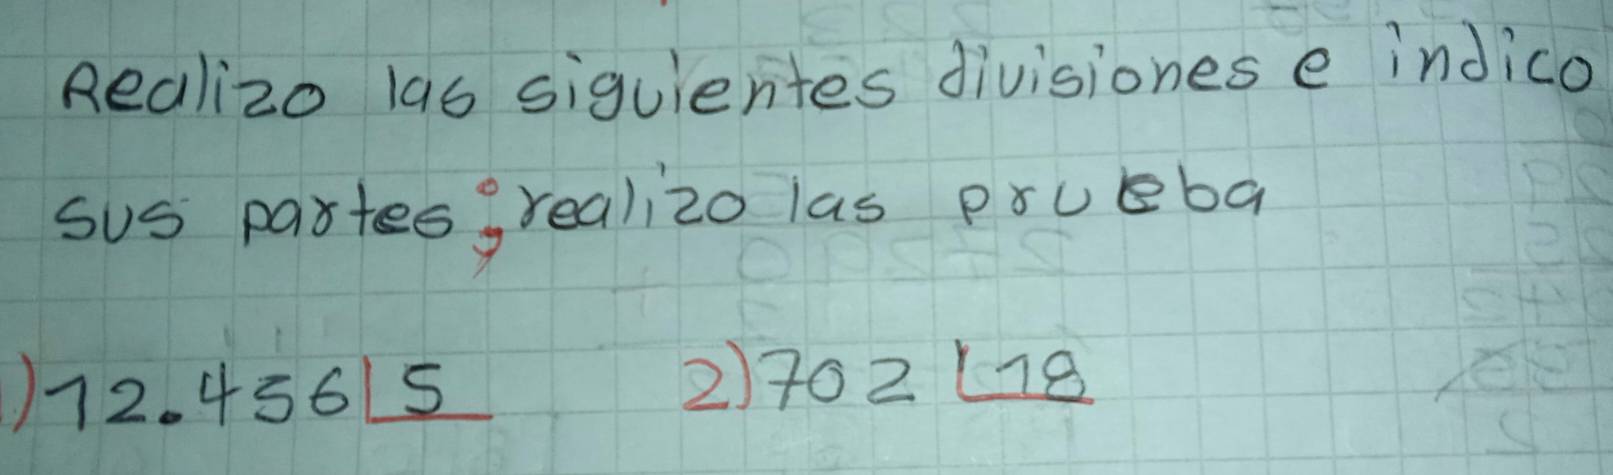 Realizo las siguientes divisiones e indico
sus partes; realizo las prueba
1) 12.456 5 2) 702 18